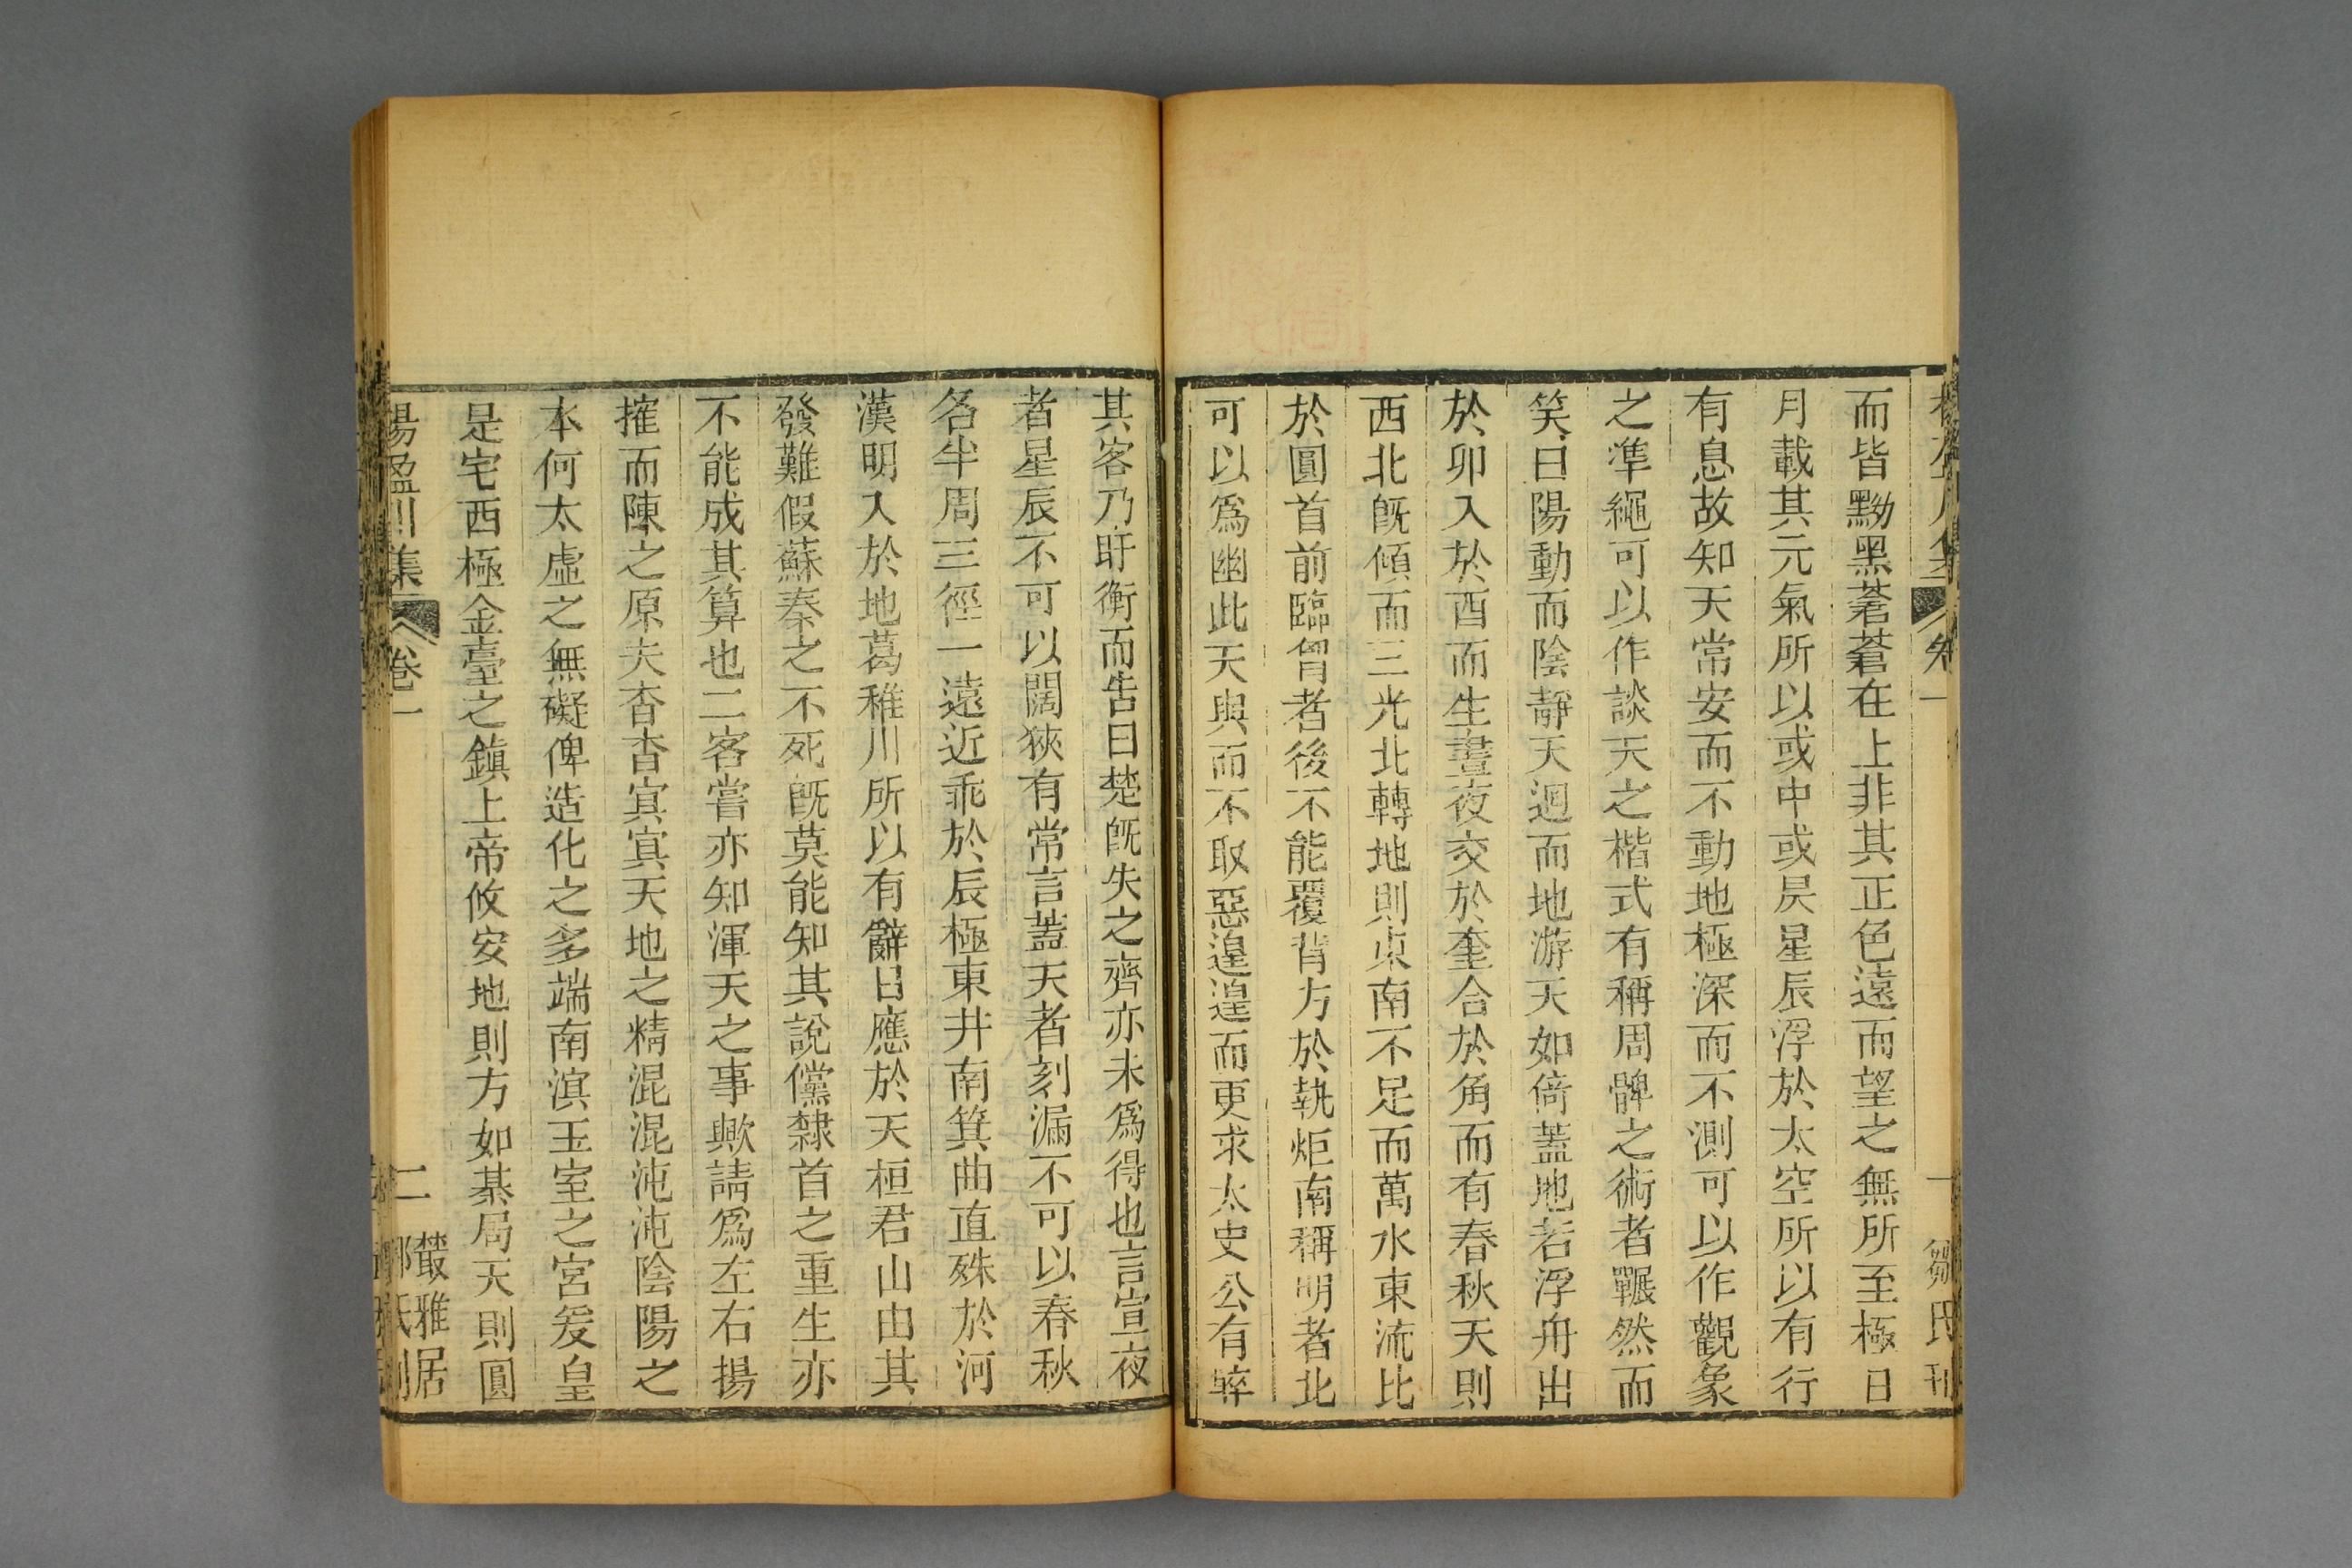 卷一
一
鄒氏刊
而皆黝黑蒼蒼在上非其正色遠而望之無所至極日
月載其元氣所以或中或昃星辰浮於太空所以有行
有息故知天常安而不動地極深而不測可以作觀象
之準繩可以作談天之楷式有稱周髀之術者囅然而
笑曰陽動而陰靜天迴而地游天如倚蓋地若浮舟出
於卯入於酉而生晝夜交於奎合於角而有春秋天則
西北旣傾而三光北轉地則東南不足而萬水東流比
於圓首前臨胷者後不能覆背方於執炬南稱明者北
可以爲幽此天與而不取惡遑遑而更求太史公有睟
其客乃盱衡而告曰楚旣失之齊亦未爲得也言宣夜
者星辰不可以闊狹有常言蓋天者刻漏不可以春秋
各半周三徑一遠近乖於辰極東井南箕曲直殊於河
漢明入於地葛稚川所以有辭日應於天桓君山由其
發難假蘇秦之不死旣莫能知其說儻隸首之重生亦
不能成其算也二客嘗亦知渾天之事歟請爲左右揚
搉而陳之原夫杳杳冥冥天地之精混混沌沌陰陽之
本何太虛之無礙俾造化之多端南溟玉室之宮爰皇
是宅西極金臺之鎮上帝攸安地則方如棊局天則圓
楊盈川集
卷一
二
叢雅居
鄒氏刊